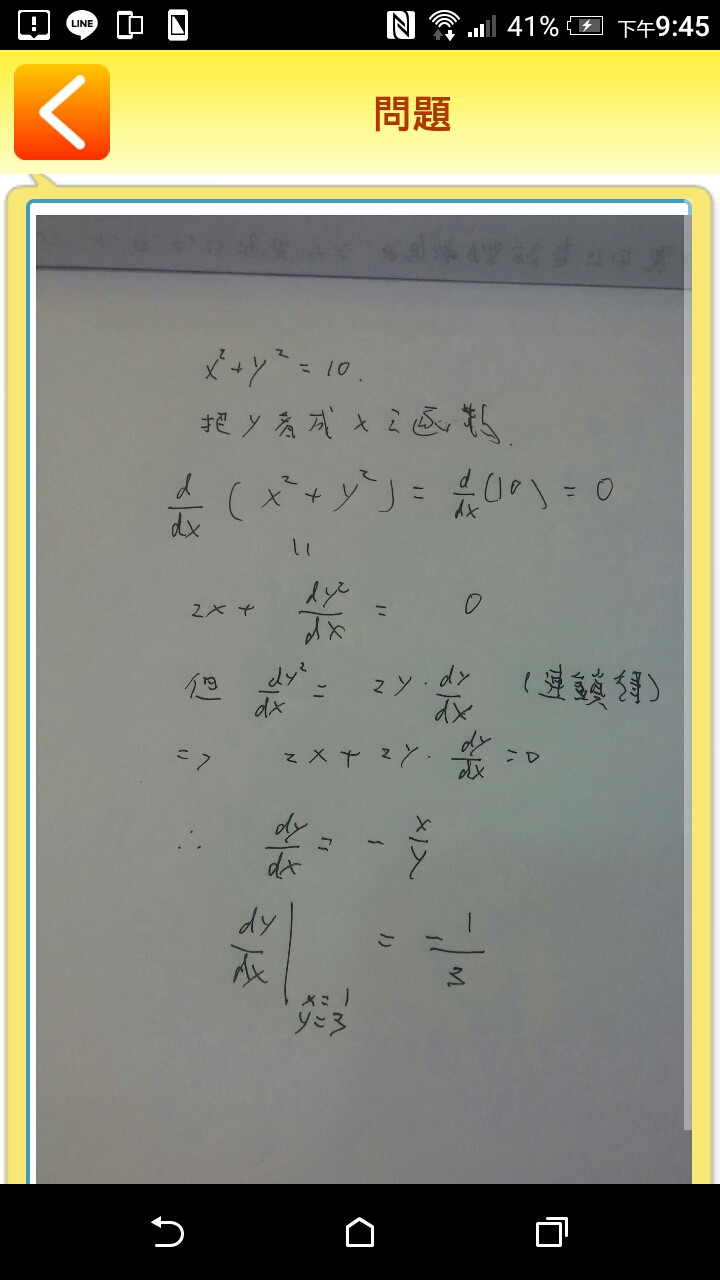 LINE 41% 下午9:45
問題
x²+y²=10.
把y看成x之函數.
d/dx (x²+y²) = d/dx (10) = 0
11
2x + dy²/dx = 0
但 dy²/dx = 2y · dy/dx (連鎖律)
=> 2x + 2y · dy/dx = 0
∴ dy/dx = - x/y
dy/dx | x=1 y=3 = -1/3